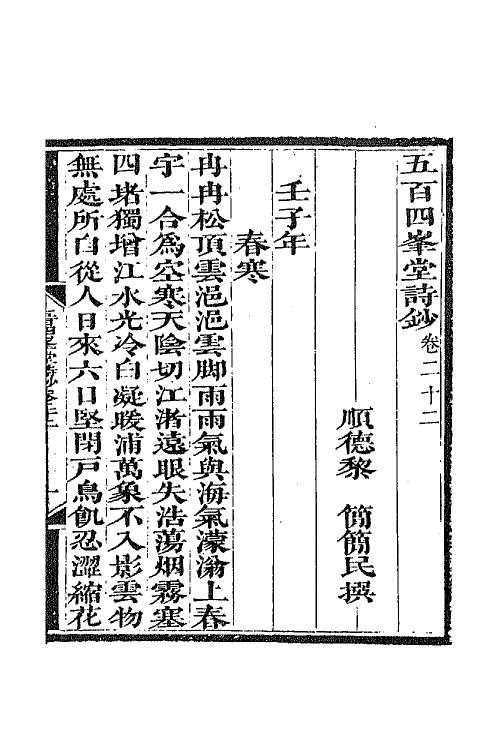 五百四峯堂詩鈔卷二十二
順德黎　簡簡民撰
壬子年
春寒
冉冉松頂雲浥浥雲脚雨雨氣與海氣濛瀚上春
宇一合爲空寒天陰切江渚遠眼失浩蕩烟霧塞
四堵獨增江水光冷白凝暖浦萬象不入影雲物
無處所自從人日來六日堅閉戸鳥飢忍澀縮花